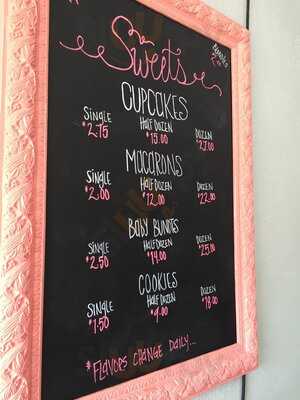 Sweets
CUPCAKES
SINGLE HALF DOZEN DOZEN
$2.75 $15.00 $27.00
MACARONS
SINGLE HALF DOZEN DOZEN
$2.00 $12.00 $22.00
BABY BUNDTS
SINGLE HALF DOZEN DOZEN
$2.50 $14.00 $25.00
COOKIES
SINGLE HALF DOZEN DOZEN
$1.50 $9.00 $18.00
*FLAVORS CHANGE DAILY...